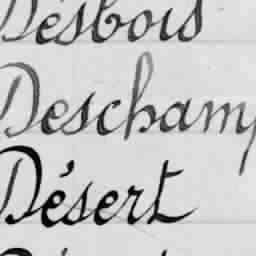 Desbois
Deschamp
Désert